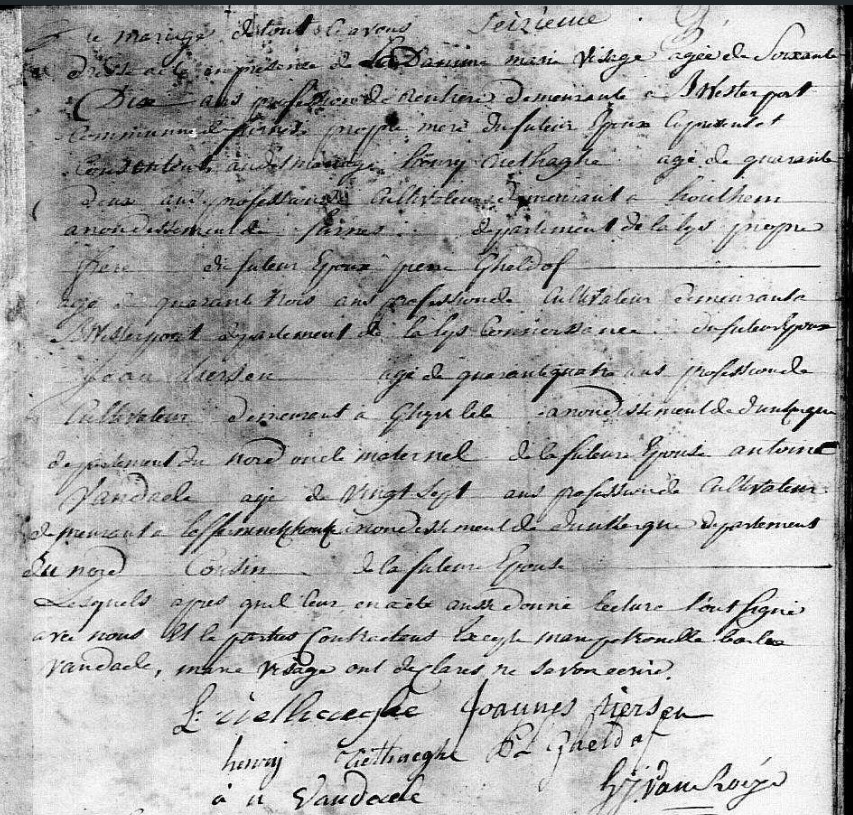 le mariage de tout ce avons Seizieme
dressé acte en presence de La Damme marie Visage agée de Soixante
Dix ans profession de Rentiere demeurante a Westerport
Commune propre mere du futeur Epoux Cy present et
Consentente audit mariage henry viethaeghe agé de quarante
deux ans profession de Cultivateur demeurant a houthem
arrondissement de furnes departement de la lys propre
frere du futeur Epoux pierre Gheldof
agé de quarant trois ans profession de Cultivateur demeurant a
Westerport departement de la lys Connoissance du futeur Epoux
Joan Miersen agé de quarant quatre ans profession de
Cultivateur demeurant a Ghyvelde arrondissement de dunkerque
departement du Nord oncle maternel de la future Epouse antoine
Vandaele agé de Vingt Sept ans profession de Cultivateur
demeurant a arrondissement de dunkerque departement
du nord Cousin de la future Epouse
Lesquels apres quil leur en a été aussi donné lecture l'ont Signé
avec nous Et le parties Contractans Excepté marie petronelle
vandaele, marie Visage ont declarés ne savoir ecrire.
L: viethaeghe Joannes Miersen
henry viethaeghe Gheldof
a Vandaele